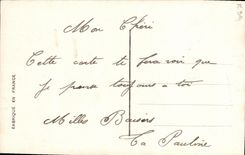 Mon Chéri
Cette carte te fera voir que
Je pense toujours a toi
Milles Baisers
Ta Pauline
FABRIQUÉ EN FRANCE